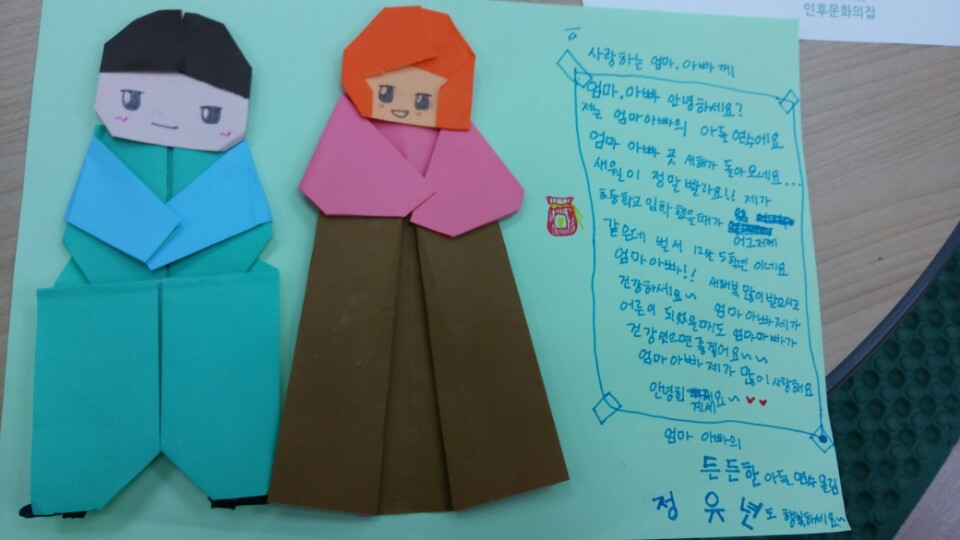 인후문화의집
사랑하는 엄마, 아빠께
엄마, 아빠 안녕하세요?
저는 엄마아빠의 아들 연수에요
엄마 아빠 곳 새해가 돌아오네요...
새월이 정말 빨라요!! 제가
초등학교 입학 했을때가
어그저께
같은데 벌써 12살 5학년 이네요
엄마아빠!! 새해복 많이받으시고
건강하세요~ 엄마 아빠 제가
어른이 되었을때도 엄마아빠가
건강셨으면 좋겠어요~~
엄마아빠 제가 많이 사랑해요
안녕히 요~ ♥♥
계세
엄마 아빠의
든든한 아들 연수 올림
정유년도 행복하세요~